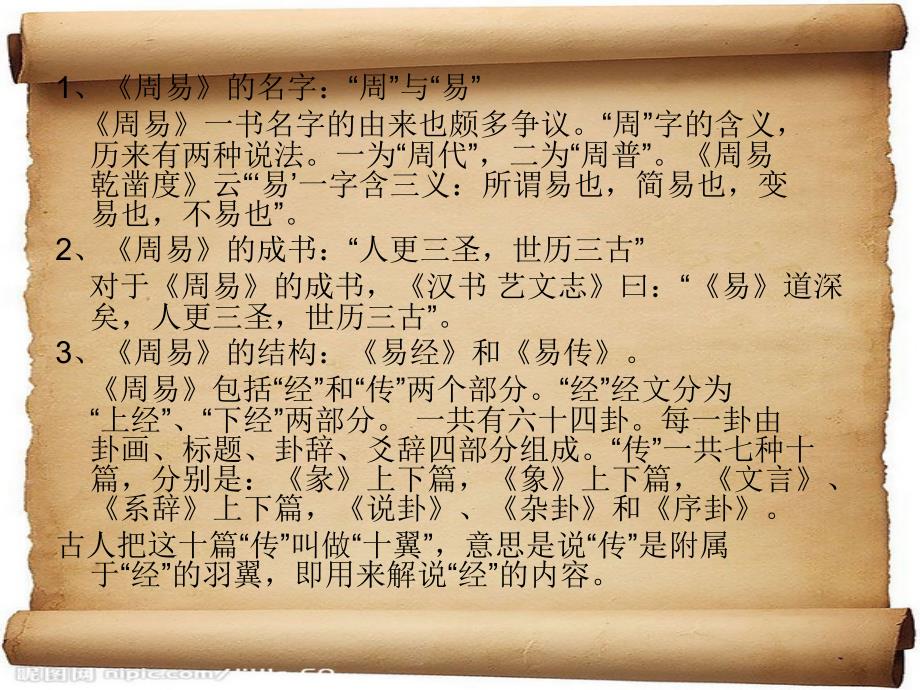 1、《周易》的名字：“周”与“易”
《周易》一书名字的由来也颇多争议。“周”字的含义，
历来有两种说法。一为“周代”，二为“周普”。《周易
乾凿度》云“‘易’一字含三义：所谓易也，简易也，变
易也，不易也”。
2、《周易》的成书：“人更三圣，世历三古”
对于《周易》的成书，《汉书 艺文志》曰：“《易》道深
矣，人更三圣，世历三古”。
3、《周易》的结构：《易经》和《易传》。
《周易》包括“经”和“传”两个部分。“经”经文分为
“上经”、“下经”两部分。 一共有六十四卦。每一卦由
卦画、标题、卦辞、爻辞四部分组成。“传”一共七种十
篇，分别是：《彖》上下篇，《象》上下篇，《文言》、
《系辞》上下篇，《说卦》、《杂卦》和《序卦》。
古人把这十篇“传”叫做“十翼”，意思是说“传”是附属
于“经”的羽翼，即用来解说“经”的内容。
昵图网 nipic.com